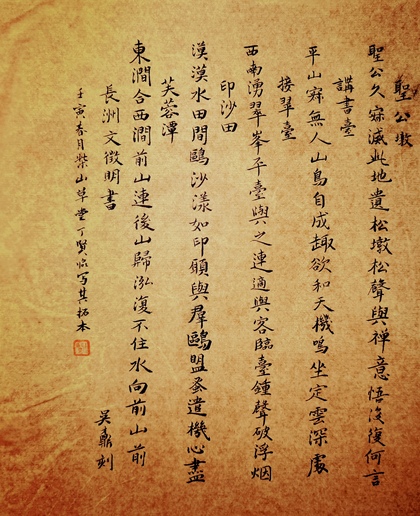 聖公墩
聖公久寂滅此地遺松墩松聲與禪意悟後復何言
講書臺
平山寂無人山鳥自成趣欲和天機鳴坐定雲深處
接翠臺
西南湧翠峯平臺與之連適與客臨臺鍾聲破浮烟
印沙田
漠漠水田間鷗沙漾如印願與羣鷗盟蚤遣機心盡
芙蓉潭
東澗合西澗前山連後山歸泓復不住水向前山前
長洲文徵明書
吳鼒刻
壬寅春月柴山草堂丁賢臨寫其拓本